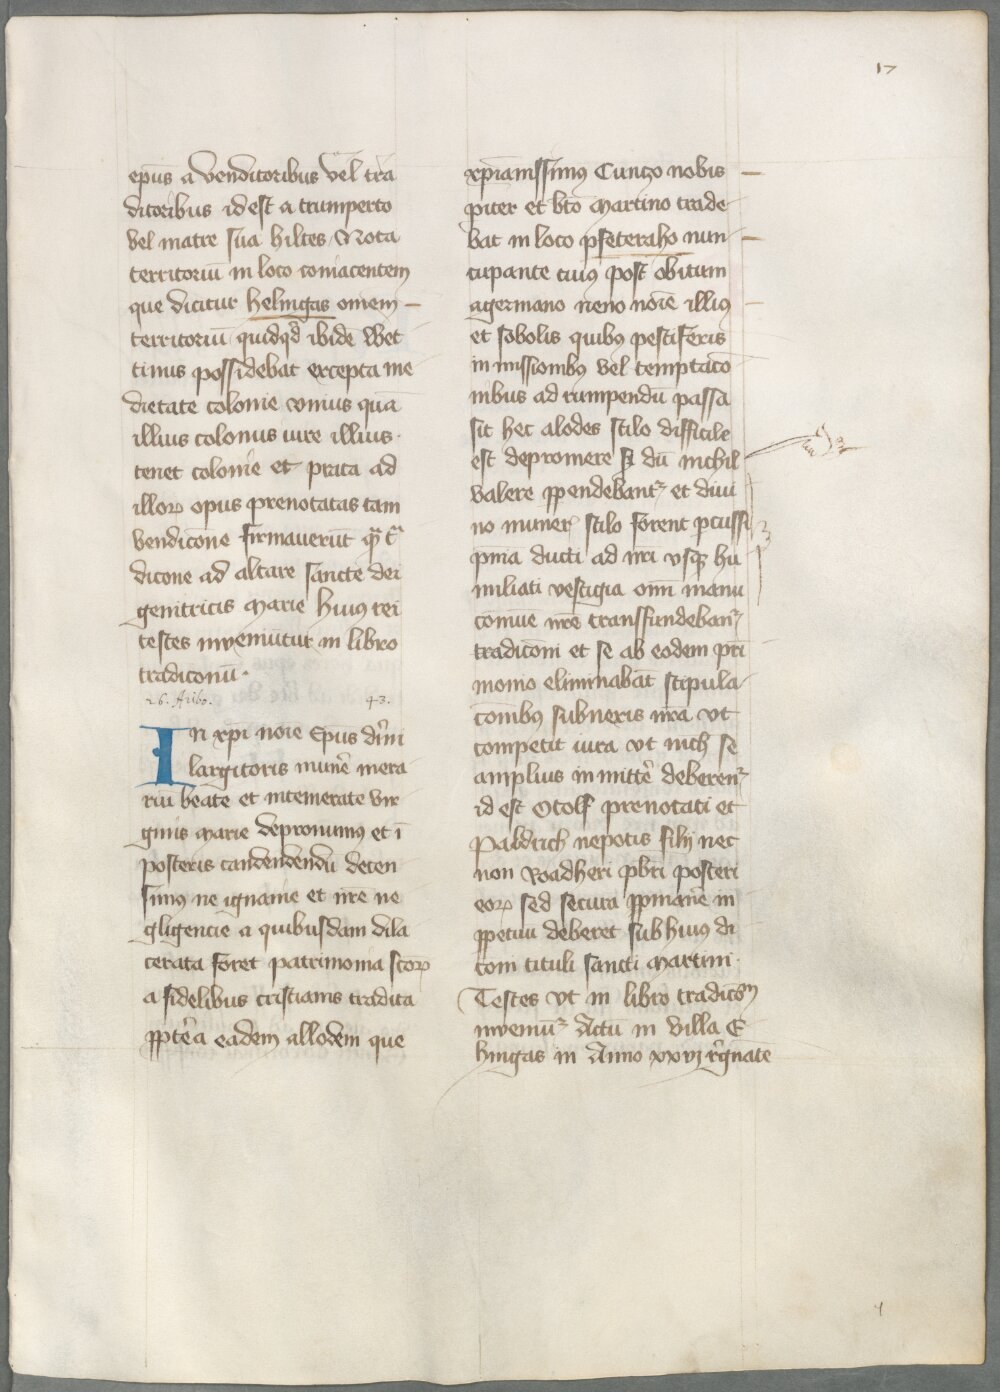 17
epūs a venditoribus vel tra
ditoribus id est a trumperto
vel matre sua hiltes Nota
territoriū in loco coniacentem
que dicitur helingas omem
territoriū quidqd ibidē wet
tinus possidebat excepta me
dietate colonie vnius quā
illius colonus iure illius
tenet colonie et prata ad
illorꝝ opus prenotatas tam
vendicōne firmaverūt
dicone ad altare sancte dei
genitricis Marie huiꝰ rei
testes inveniūtur in libro
tradiconū
26. Aribo. 43.
In xpi noīe Epūs
largitoris munē mera
riū beate et intemerate vir
ginis Marie depronimꝰ et ī
posteris tandendendū decen
simꝰ ne ignavie et nrē ne
gligencie a quibusdam dila
cerata foret patrimonia scōrꝝ
a fidelibus cristianis tradita
ꝓptēa eadem allodem que
xpīanissimꝰ Cunzo nobis
piter et btō Martino trade
bat in loco pseteraho nun
cupante cuiꝰ post obitum
agermano neno noīe illiꝰ
et sobolis quibꝰ pestiferis
in missionibꝰ vel temptacō
nibus ad rumpendū passa
sit hec alodes stilo difficile
est depromere dū nichil
valere ꝑpendebantꝛ et diui
no muner stilo forent ꝑcussi
pnīa ducti ad nrī vsqꝫ hu
miliati vestigia om̄i manu
cōmuē nrē transfundebanꝛ
tradicōni et se ab eodem ptī
monio eliminabāt stipula
cōnibꝰ subneris nrā vt
competit iura vt nich se
amplius in mittē deberenꝛ
id est Otolf prenotati et
Paldrich nepotis filij nec
non Roadheri pbrī posteri
eorꝝ sed secura ꝑmanē in
ꝑpetuū deberet sub huiꝰ di
tom tituli sancti Martini
Testes vt in libro tradicōm
inveniūꝛ Actū in villa E
hingas in Anno xxvj rēgnāte
4